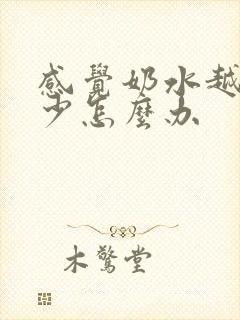 感覺奶水越
少怎麼办
木驚堂